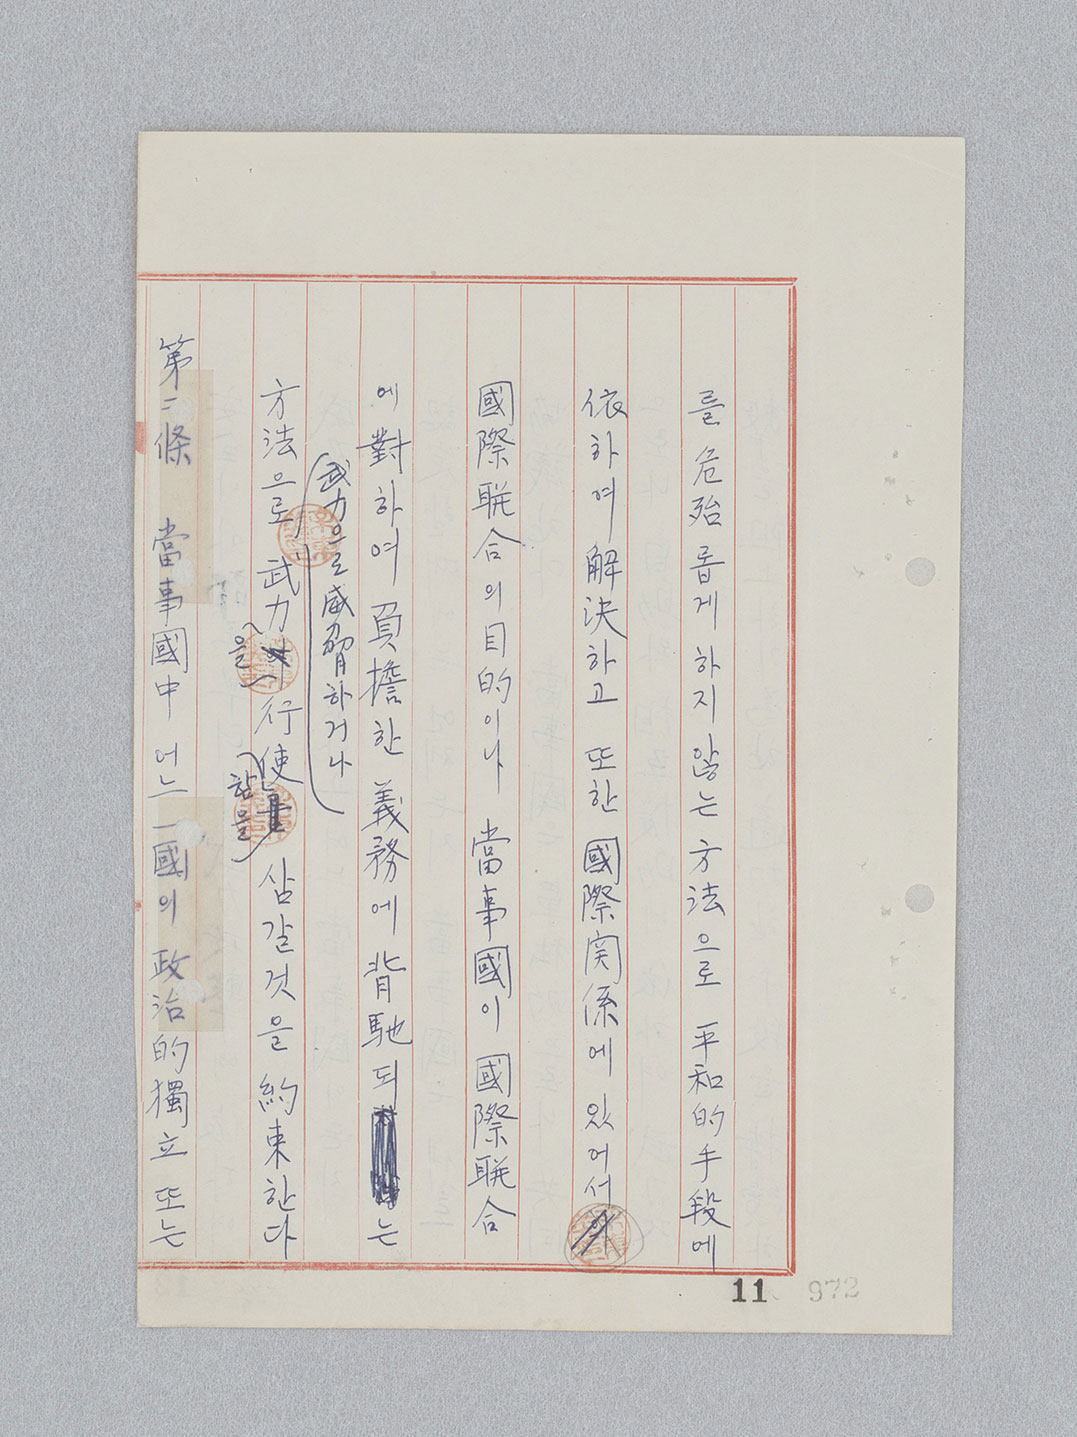 를 危殆롭게 하지 않는 方法으로 平和的手段에
依하여 解決하고 또한 國際関係에 있어서
國際联合의 目的이나 當事國이 國際联合
에 對하여 負擔한 義務에 背馳되는
武力으로 威脅하거나
方法으로 武力 行使 삼갈것을 約束한다
을
함을
第二條 當事國中 어느 一國의 政治的獨立 또는
11
972